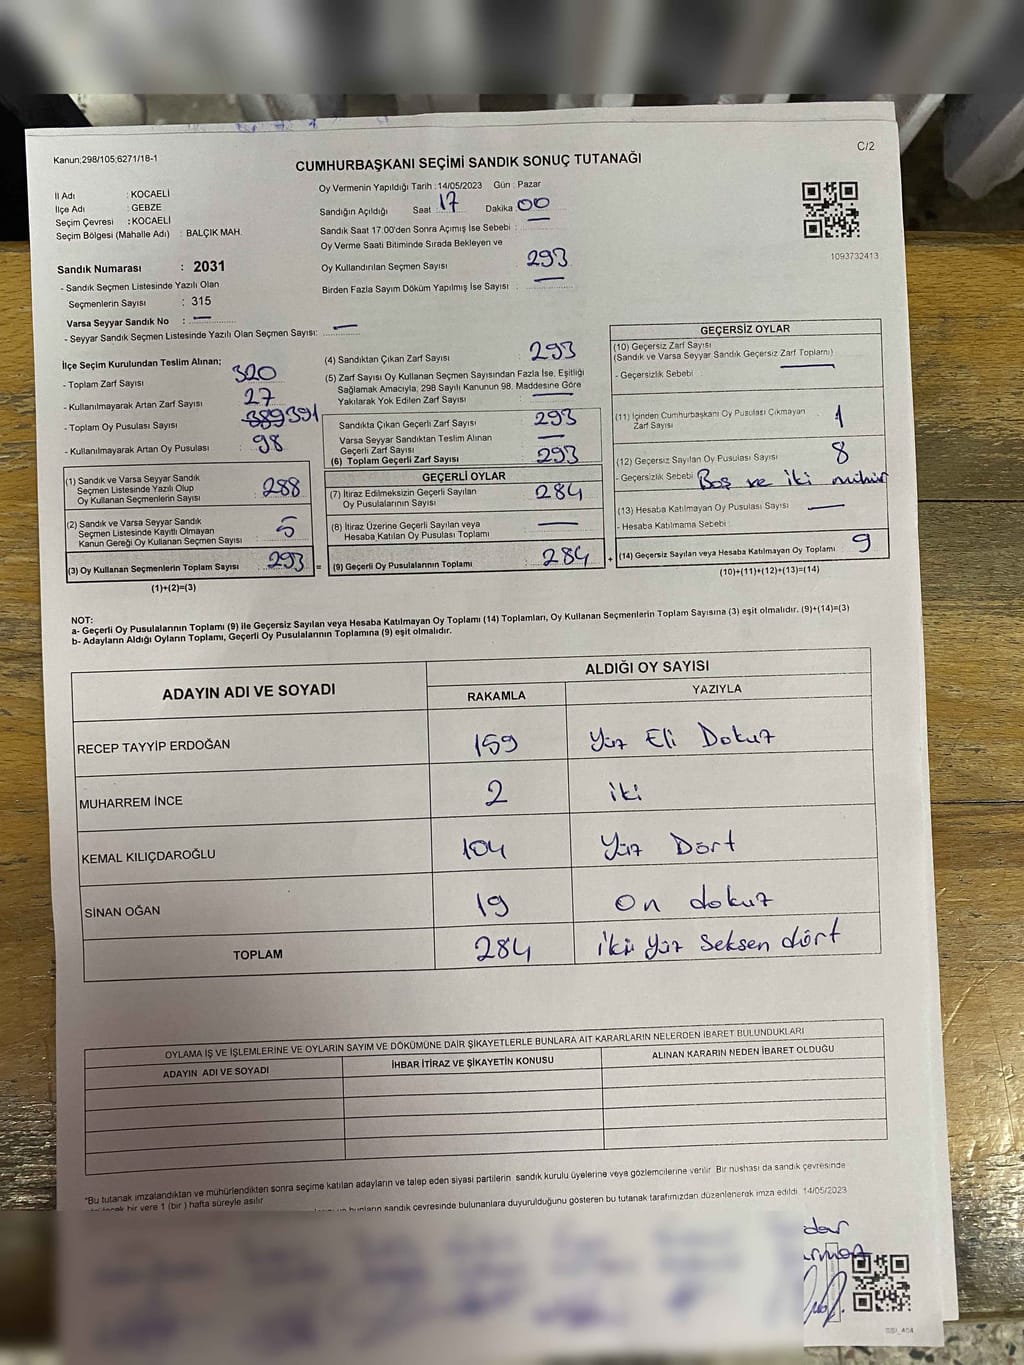 Kanun;298/105;6271/18-1
C/2
CUMHURBAŞKANI SEÇİMİ SANDIK SONUÇ TUTANAĞI
İl Adı : KOCAELİ
İlçe Adı : GEBZE
Seçim Çevresi : KOCAELİ
Seçim Bölgesi (Mahalle Adı) : BALÇIK MAH.
Sandık Numarası : 2031
- Sandık Seçmen Listesinde Yazılı Olan
Seçmenlerin Sayısı : 315
Varsa Seyyar Sandık No : —
- Seyyar Sandık Seçmen Listesinde Yazılı Olan Seçmen Sayısı: —
Oy Vermenin Yapıldığı Tarih : 14/05/2023 Gün : Pazar
Sandığın Açıldığı Saat 17 Dakika 00
Sandık Saat 17.00'den Sonra Açımış İse Sebebi : —
Oy Verme Saati Bitiminde Sırada Bekleyen ve
Oy Kullandırılan Seçmen Sayısı : 293
Birden Fazla Sayım Döküm Yapılmış İse Sayısı : —
1093732413
İlçe Seçim Kurulundan Teslim Alınan;
- Toplam Zarf Sayısı : 320
- Kullanılmayarak Artan Zarf Sayısı : 27
- Toplam Oy Pusulası Sayısı : 389 391
- Kullanılmayarak Artan Oy Pusulası : 98
(1) Sandık ve Varsa Seyyar Sandık
Seçmen Listesinde Yazılı Olup
Oy Kullanan Seçmenlerin Sayısı : 288
(2) Sandık ve Varsa Seyyar Sandık
Seçmen Listesinde Kayıtlı Olmayan
Kanun Gereği Oy Kullanan Seçmen Sayısı : 5
(3) Oy Kullanan Seçmenlerin Toplam Sayısı : 293 =
(1)+(2)=(3)
(4) Sandıktan Çıkan Zarf Sayısı : 293
(5) Zarf Sayısı Oy Kullanan Seçmen Sayısından Fazla İse, Eşitliği
Sağlamak Amacıyla; 298 Sayılı Kanunun 98. Maddesine Göre
Yakılarak Yok Edilen Zarf Sayısı : —
Sandıkta Çıkan Geçerli Zarf Sayısı : 293
Varsa Seyyar Sandıktan Teslim Alınan
Geçerli Zarf Sayısı : —
(6) Toplam Geçerli Zarf Sayısı : 293
GEÇERLİ OYLAR
(7) İtiraz Edilmeksizin Geçerli Sayılan
Oy Pusulalarının Sayısı : 284
(8) İtiraz Üzerine Geçerli Sayılan veya
Hesaba Katılan Oy Pusulası Toplamı : —
(9) Geçerli Oy Pusulalarının Toplamı : 284 +
GEÇERSİZ OYLAR
(10) Geçersiz Zarf Sayısı
(Sandık ve Varsa Seyyar Sandık Geçersiz Zarf Toplamı) —
- Geçersizlik Sebebi :
(11) İçinden Cumhurbaşkanı Oy Pusulası Çıkmayan
Zarf Sayısı : 1
(12) Geçersiz Sayılan Oy Pusulası Sayısı : 8
- Geçersizlik Sebebi : Boş ve iki mühür
(13) Hesaba Katılmayan Oy Pusulası Sayısı : —
- Hesaba Katılmama Sebebi :
(14) Geçersiz Sayılan veya Hesaba Katılmayan Oy Toplamı : 9
(10)+(11)+(12)+(13)=(14)
NOT:
a- Geçerli Oy Pusulalarının Toplamı (9) ile Geçersiz Sayılan veya Hesaba Katılmayan Oy Toplamı (14) Toplamları, Oy Kullanan Seçmenlerin Toplam Sayısına (3) eşit olmalıdır. (9)+(14)=(3)
b- Adayların Aldığı Oyların Toplamı, Geçerli Oy Pusulalarının Toplamına (9) eşit olmalıdır.
ADAYIN ADI VE SOYADI
ALDIĞI OY SAYISI
RAKAMLA YAZIYLA
RECEP TAYYİP ERDOĞAN 159 Yüz Eli Dokuz
MUHARREM İNCE 2 iki
KEMAL KILIÇDAROĞLU 104 Yüz Dört
SİNAN OĞAN 19 On dokuz
TOPLAM 284 iki yüz seksen dört
OYLAMA İŞ VE İŞLEMLERİNE VE OYLARIN SAYIM VE DÖKÜMÜNE DAİR ŞİKAYETLERLE BUNLARA AİT KARARLARIN NELERDEN İBARET BULUNDUKLARI
ADAYIN ADI VE SOYADI İHBAR İTİRAZ VE ŞİKAYETİN KONUSU ALINAN KARARIN NEDEN İBARET OLDUĞU
*Bu tutanak imzalandıktan ve mühürlendikten sonra seçime katılan adayların ve talep eden siyasi partilerin sandık kurulu üyelerine veya gözlemcilerine verilir. Bir nüshası da sandık çevresinde
bir yere 1 (bir) hafta süreyle asılır
bunların sandık çevresinde bulunanlara duyurulduğunu gösteren bu tutanak tarafımızdan düzenlenerek imza edildi. 14/05/2023